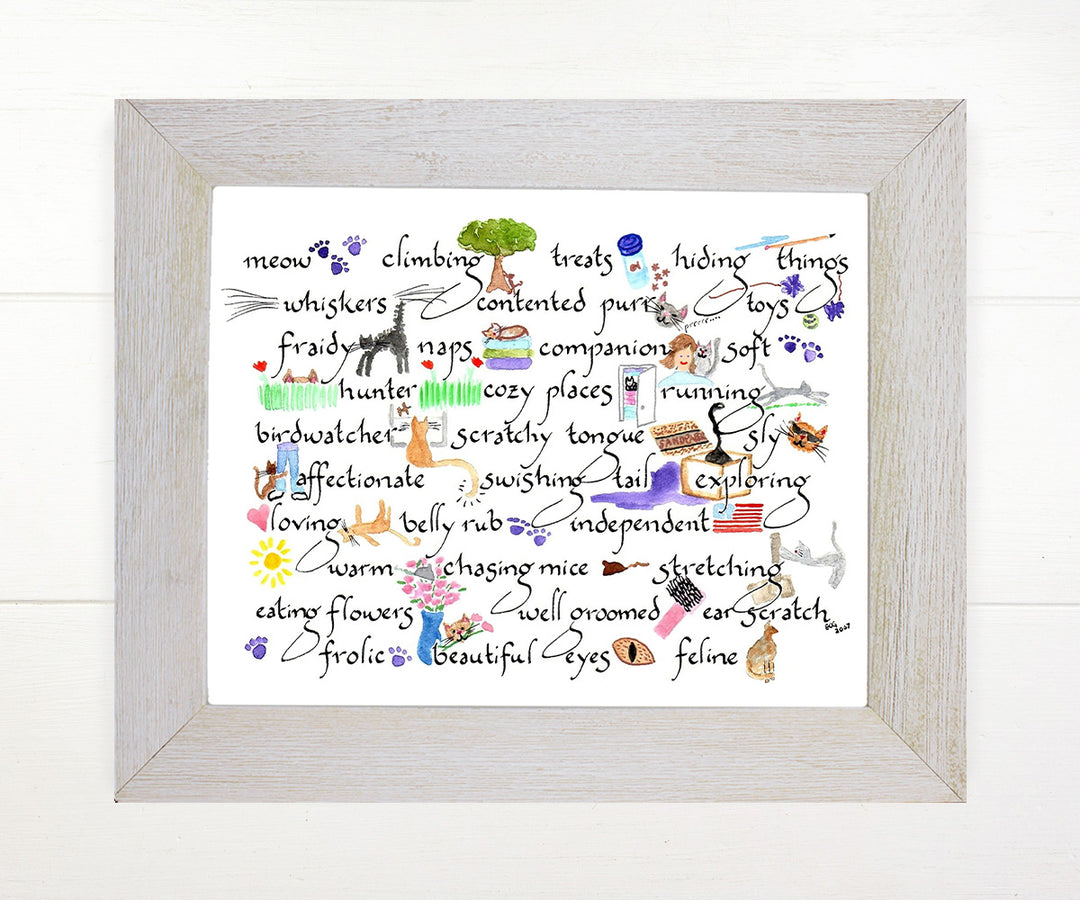 meow climbing treats hiding things
whiskers contented purr toys
prrrr....
fraidy naps companion soft
hunter cozy places running
birdwatcher scratchy tongue SANDPAPER sly
affectionate swishing tail exploring
loving belly rub independent
warm chasing mice stretching
eating flowers well groomed ear scratch
ECG
2007
frolic beautiful eyes feline